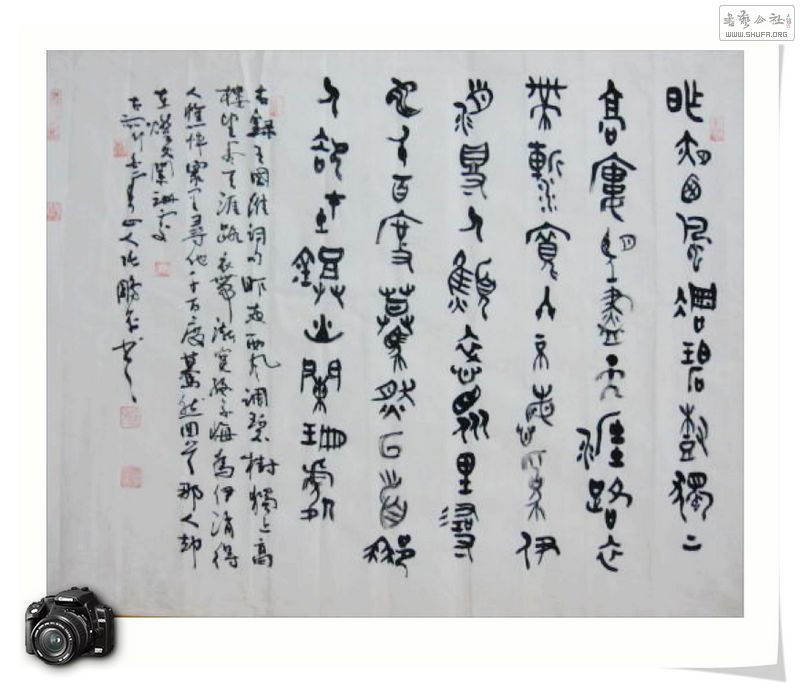 昨夜西風凋碧樹獨上
高樓望盡天涯路衣
帶漸寬終不悔為伊
消得人憔悴眾里尋
他千百度驀然回首那
人卻在燈火闌珊處
右錄王國維詞句昨夜西風調碧樹獨上高
樓望盡天涯路衣帶漸寬終不悔為伊消得
人憔悴眾里尋他千百度驀然回首那人卻
在燈火闌珊處
山人張鵬書
書藝公社
WWW.SHUFA.ORG